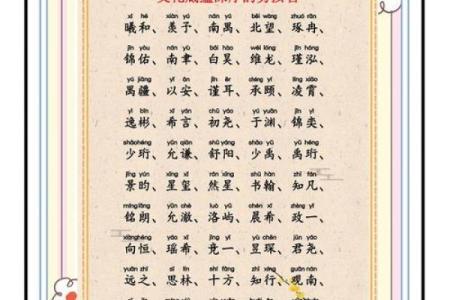 xī hé xiàn yú nán yú běi wàng zhuó rǎn
曦和、羡予、南禺、北望、琢冉、
jǐn yòu nán yù bái hào wéi lóng jǐn hóng
锦佑、南聿、白昊、维龙、瑾泓、
yú jiāng yǐ ān jǐn ěr chéng yí líng xiāo
禺疆、以安、谨耳、承颐、凌霄、
yì bīn xī yán chū yáo yú yuān jǐn yì
逸彬、希言、初尧、于渊、锦奕、
shàohéng yǔn qiān shū yáng shào yǔ yǔ héng
少珩、允谦、舒阳、少禹、禹珩、
jǐng yún xīng xǐ rán xīng shū hàn zhī fán
景昀、星玺、然星、书翰、知凡、
mínglǎng yǔn chè luò yǔ chén xī zhèng yī
铭朗、允澈、洛屿、晨希、政一、
xiànghéng yáo xī jìng yī yù chēn jūn yáo
向恒、瑶希、竞一、昱琛、君尧、
yuǎn zhī sī lín shí fāng zhī xíng guān nán
远之、思林、十方、知行、观南、